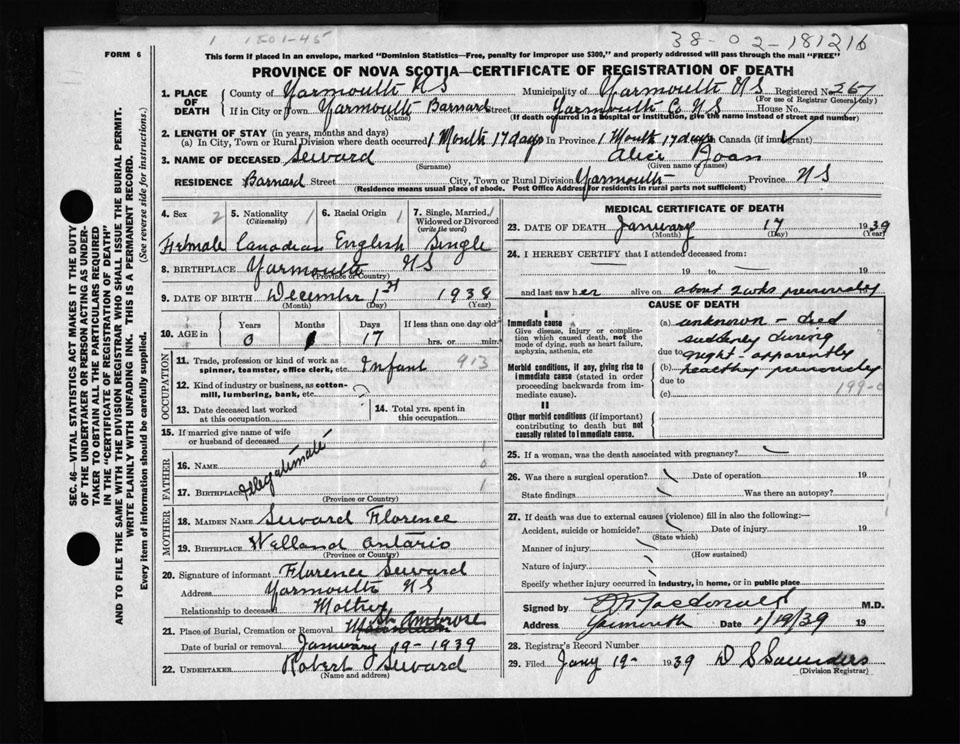 1 1501-45
38-02-181216
FORM 6
This form if placed in an envelope, marked "Dominion Statistics—Free, penalty for improper use $300," and properly addressed will pass through the mail "FREE"
PROVINCE OF NOVA SCOTIA—CERTIFICATE OF REGISTRATION OF DEATH
1. PLACE OF DEATH County of Yarmouth NS Municipality of Yarmouth NS Registered No. 267
(For use of Registrar General only)
If in City or Town Yarmouth Barnard Street Yarmouth Co NS House No.
(Name) (If death occurred in a hospital or institution, give the name instead of street and number)
2. LENGTH OF STAY (in years, months and days)
(a) In City, Town or Rural Division where death occurred 1 Month 17 days In Province 1 Month 17 days Canada (if immigrant)
3. NAME OF DECEASED Seward Alice Joan
(Surname) (Given name or names)
RESIDENCE Barnard Street City, Town or Rural Division Yarmouth Province NS
(Residence means usual place of abode. Post Office Address for residents in rural parts not sufficient)
4. Sex 2 5. Nationality 1 6. Racial Origin 1 7. Single, Married, Widowed or Divorced 1
(Citizenship) (write the word)
Female Canadian English Single
8. BIRTHPLACE Yarmouth NS
(Province or Country)
9. DATE OF BIRTH December 1st 1938
(Month) (Day) (Year)
10. AGE in Years Months Days If less than one day old
0 1 17 hrs. or min.
OCCUPATION
11. Trade, profession or kind of work as spinner, teamster, office clerk, etc. Infant 913
12. Kind of industry or business, as cotton-mill, lumbering, bank, etc.
13. Date deceased last worked at this occupation
14. Total yrs. spent in this occupation
15. If married give name of wife or husband of deceased
FATHER
16. Name Illegitimate 0
17. Birthplace 1
(Province or Country)
MOTHER
18. Maiden Name Seward Florence
19. Birthplace Welland Ontario
(Province or Country)
20. Signature of informant Florence Seward
Address Yarmouth NS
Relationship to deceased Mother
21. Place of Burial, Cremation or Removal St Ambrose
Date of burial or removal January 19-1939
22. Undertaker Robert Seward
(Name and address)
MEDICAL CERTIFICATE OF DEATH
23. DATE OF DEATH January 17 1939
(Month) (Day) (Year)
24. I HEREBY CERTIFY that I attended deceased from:
19 to 19
and last saw her alive on about 2 wks previously
CAUSE OF DEATH
I
Immediate cause
Give disease, injury or complication which caused death, not the mode of dying, such as heart failure, asphyxia, asthenia, etc
(a) unknown - died
suddenly during
due to night - apparently
Morbid conditions, if any, giving rise to immediate cause (stated in order proceeding backwards from immediate cause).
(b) healthy previously
due to 199-c
(c)
II
Other morbid conditions (if important) contributing to death but not causally related to immediate cause.
25. If a woman, was the death associated with pregnancy?
26. Was there a surgical operation? Date of operation 19
State findings Was there an autopsy?
27. If death was due to external causes (violence) fill in also the following:—
Accident, suicide or homicide? Date of injury 19
(State which)
Manner of injury
(How sustained)
Nature of injury
Specify whether injury occurred in industry, in home, or in public place
Signed by Macdonald M.D.
Address Yarmouth Date 1/19/39 19
28. Registrar's Record Number
29. Filed Jany 19- 1939 D S Saunders
(Division Registrar)
SEC. 46—VITAL STATISTICS ACT MAKES IT THE DUTY
OF THE UNDERTAKER OR PERSON ACTING AS UNDER-
TAKER TO OBTAIN ALL THE PARTICULARS REQUIRED
IN THE "CERTIFICATE OF REGISTRATION OF DEATH"
AND TO FILE THE SAME WITH THE DIVISION REGISTRAR WHO SHALL ISSUE THE BURIAL PERMIT.
WRITE PLAINLY WITH UNFADING INK. THIS IS A PERMANENT RECORD.
Every item of information should be carefully supplied. (See reverse side for instructions.)